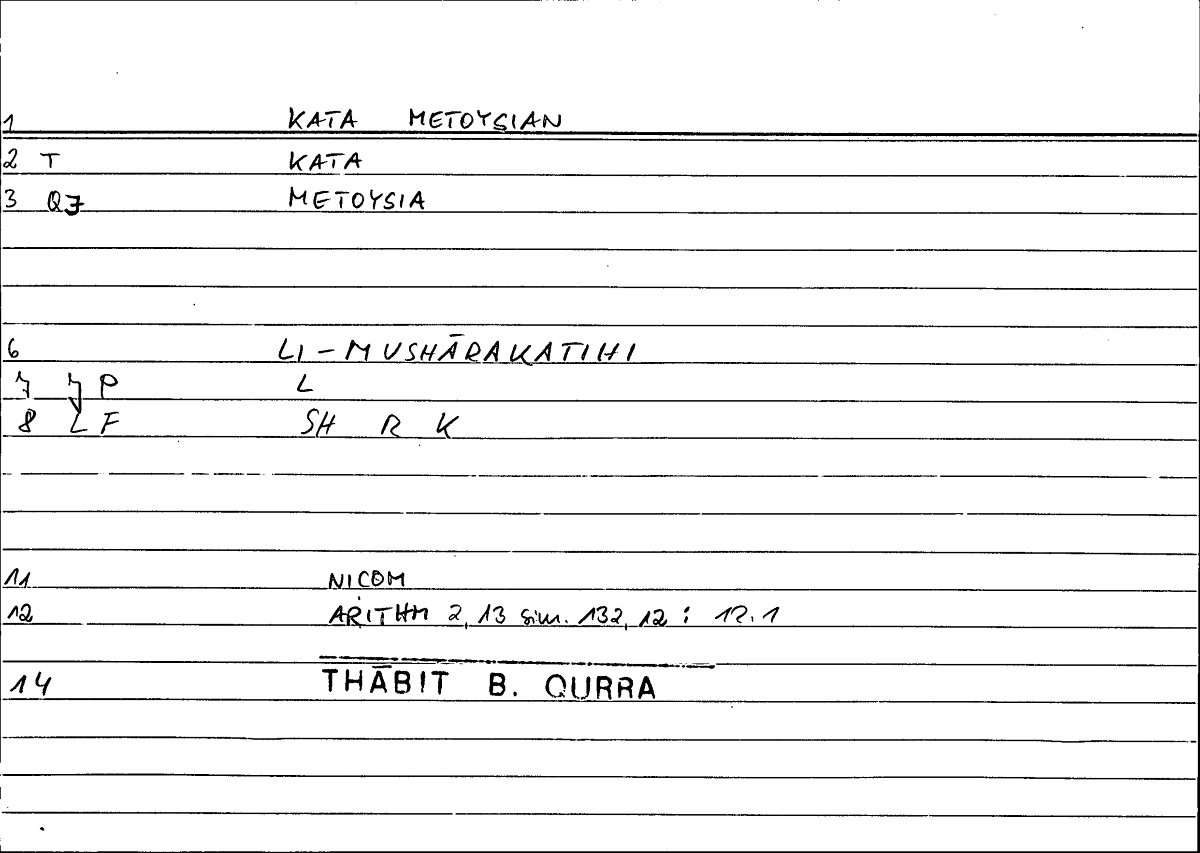 1 KATA METOYSIAN
2 T KATA
3 QJ METOYSIA
6 LI-MUSHĀRAKATIHI
7 P L
8 LF SH R K
11 NICOM
12 ARITHM 2,13 sim. 132,12 : 12.1
14 THĀBIT B. QURRA